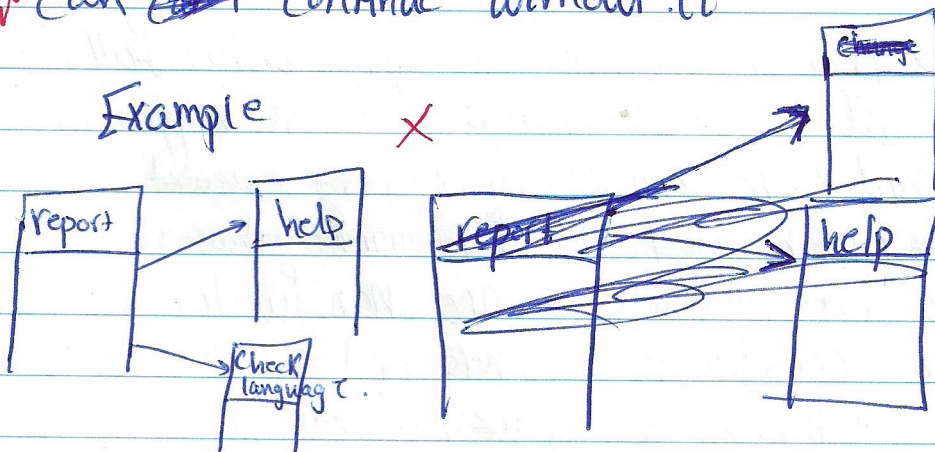 can continue without it
Example
report
help
Check
language.
report
change
help